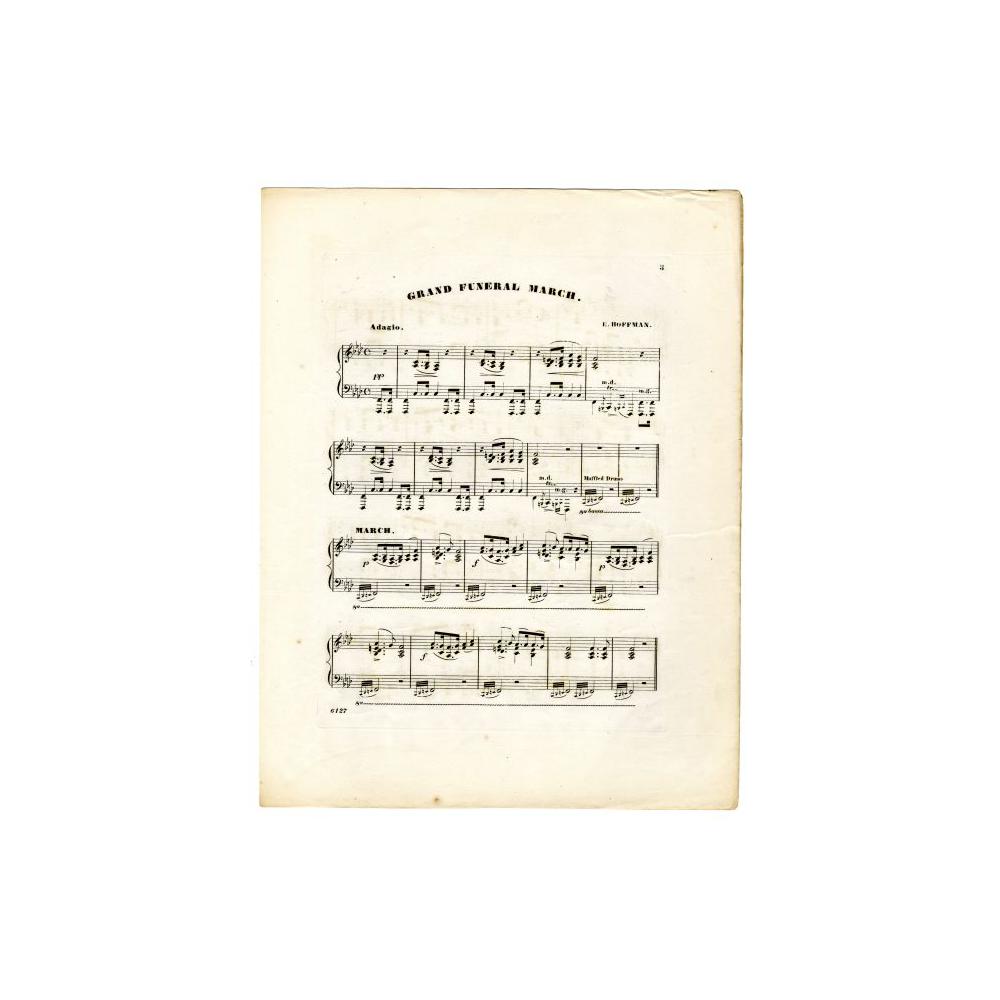 3
GRAND FUNERAL MARCH.
Adagio.
E. HOFFMAN.
pp
m.d.
m.g.
m.d.
m.g.
Muffled Drums
8va bassa
MARCH.
p
f
p
8va
f
8va
6127